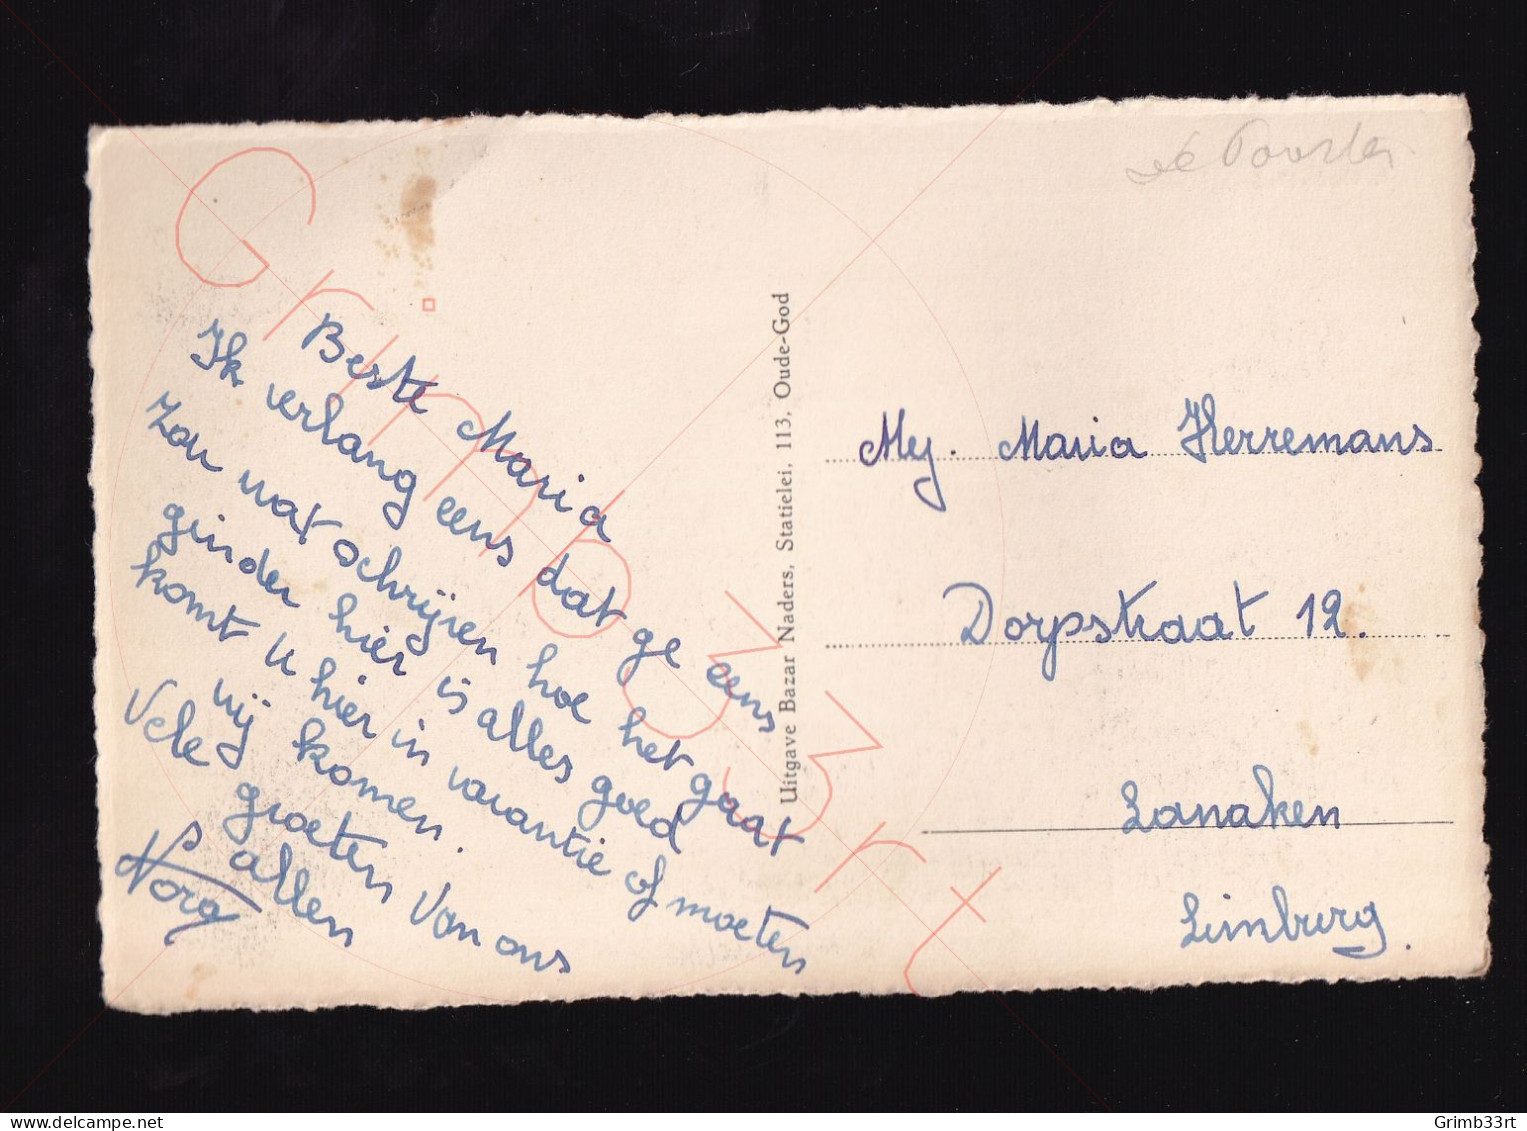 Beste Maria
Ik verlang eens dat ge eens
zou wat schrijven hoe het gaat
ginder hier is alles goed
komt u hier in vacantie of moeten
wij komen.
Vele groeten Van ons
allen
Nora
Uitgave Bazar Naders, Statielei, 113, Oude-God
de Poorter
Mej. Maria Herremans
Dorpstraat 12.
Lanaken
Limburg.
Grimb33rt
delcampe.net
Grimb33rt